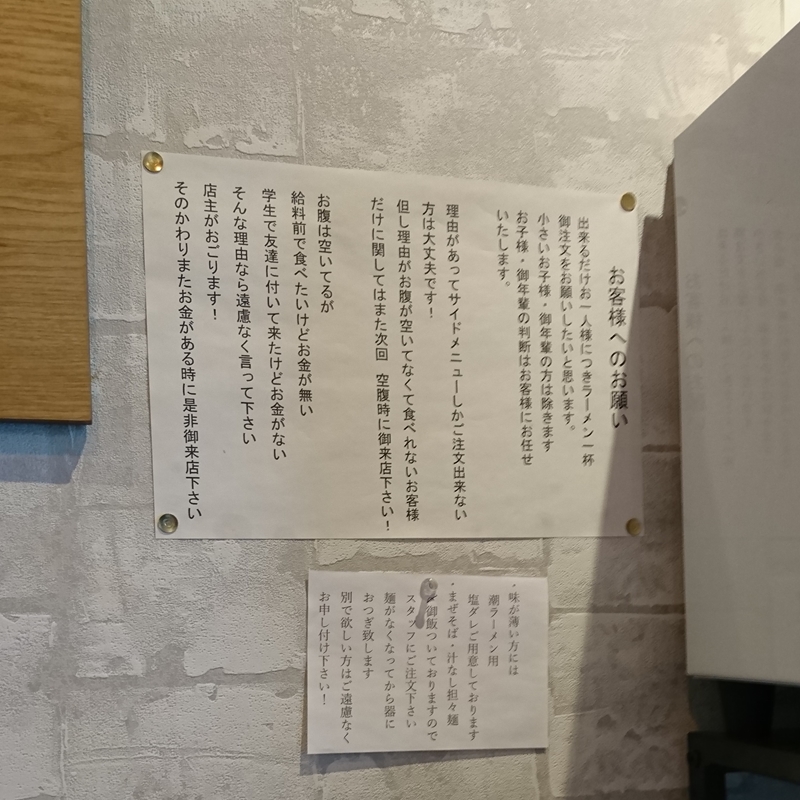 お客様へのお願い
出来るだけお一人様につきラーメン一杯
御注文をお願いしたいと思います。
小さいお子様・御年輩の方は除きます
お子様・御年輩の判断はお客様にお任せ
いたします。
理由があってサイドメニューしかご注文出来ない
方は大丈夫です！
但し理由がお腹が空いてなくて食べれないお客様
だけに関してはまた次回 空腹時に御来店下さい！
お腹は空いてるが
給料前で食べたいけどお金が無い
学生で友達に付いて来たけどお金がない
そんな理由なら遠慮なく言って下さい
店主がおごります！
そのかわりまたお金がある時に是非御来店下さい
・味が薄い方には
潮ラーメン用
塩ダレご用意しております
・まぜそば・汁なし担々麺
御飯ついておりますので
スタッフにご注文下さい
麺がなくなってから器に
おつぎ致します
別で欲しい方はご遠慮なく
お申し付け下さい！